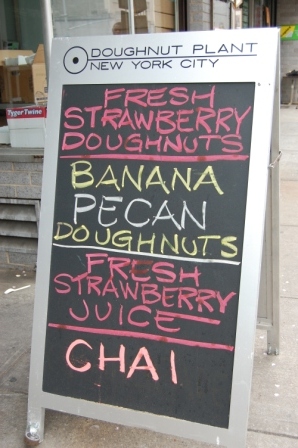 DOUGHNUT PLANT
NEW YORK CITY
FRESH
STRAWBERRY
DOUGHNUTS
BANANA
PECAN
DOUGHNUTS
FRESH
STRAWBERRY
JUICE
CHAI
TigerTwine